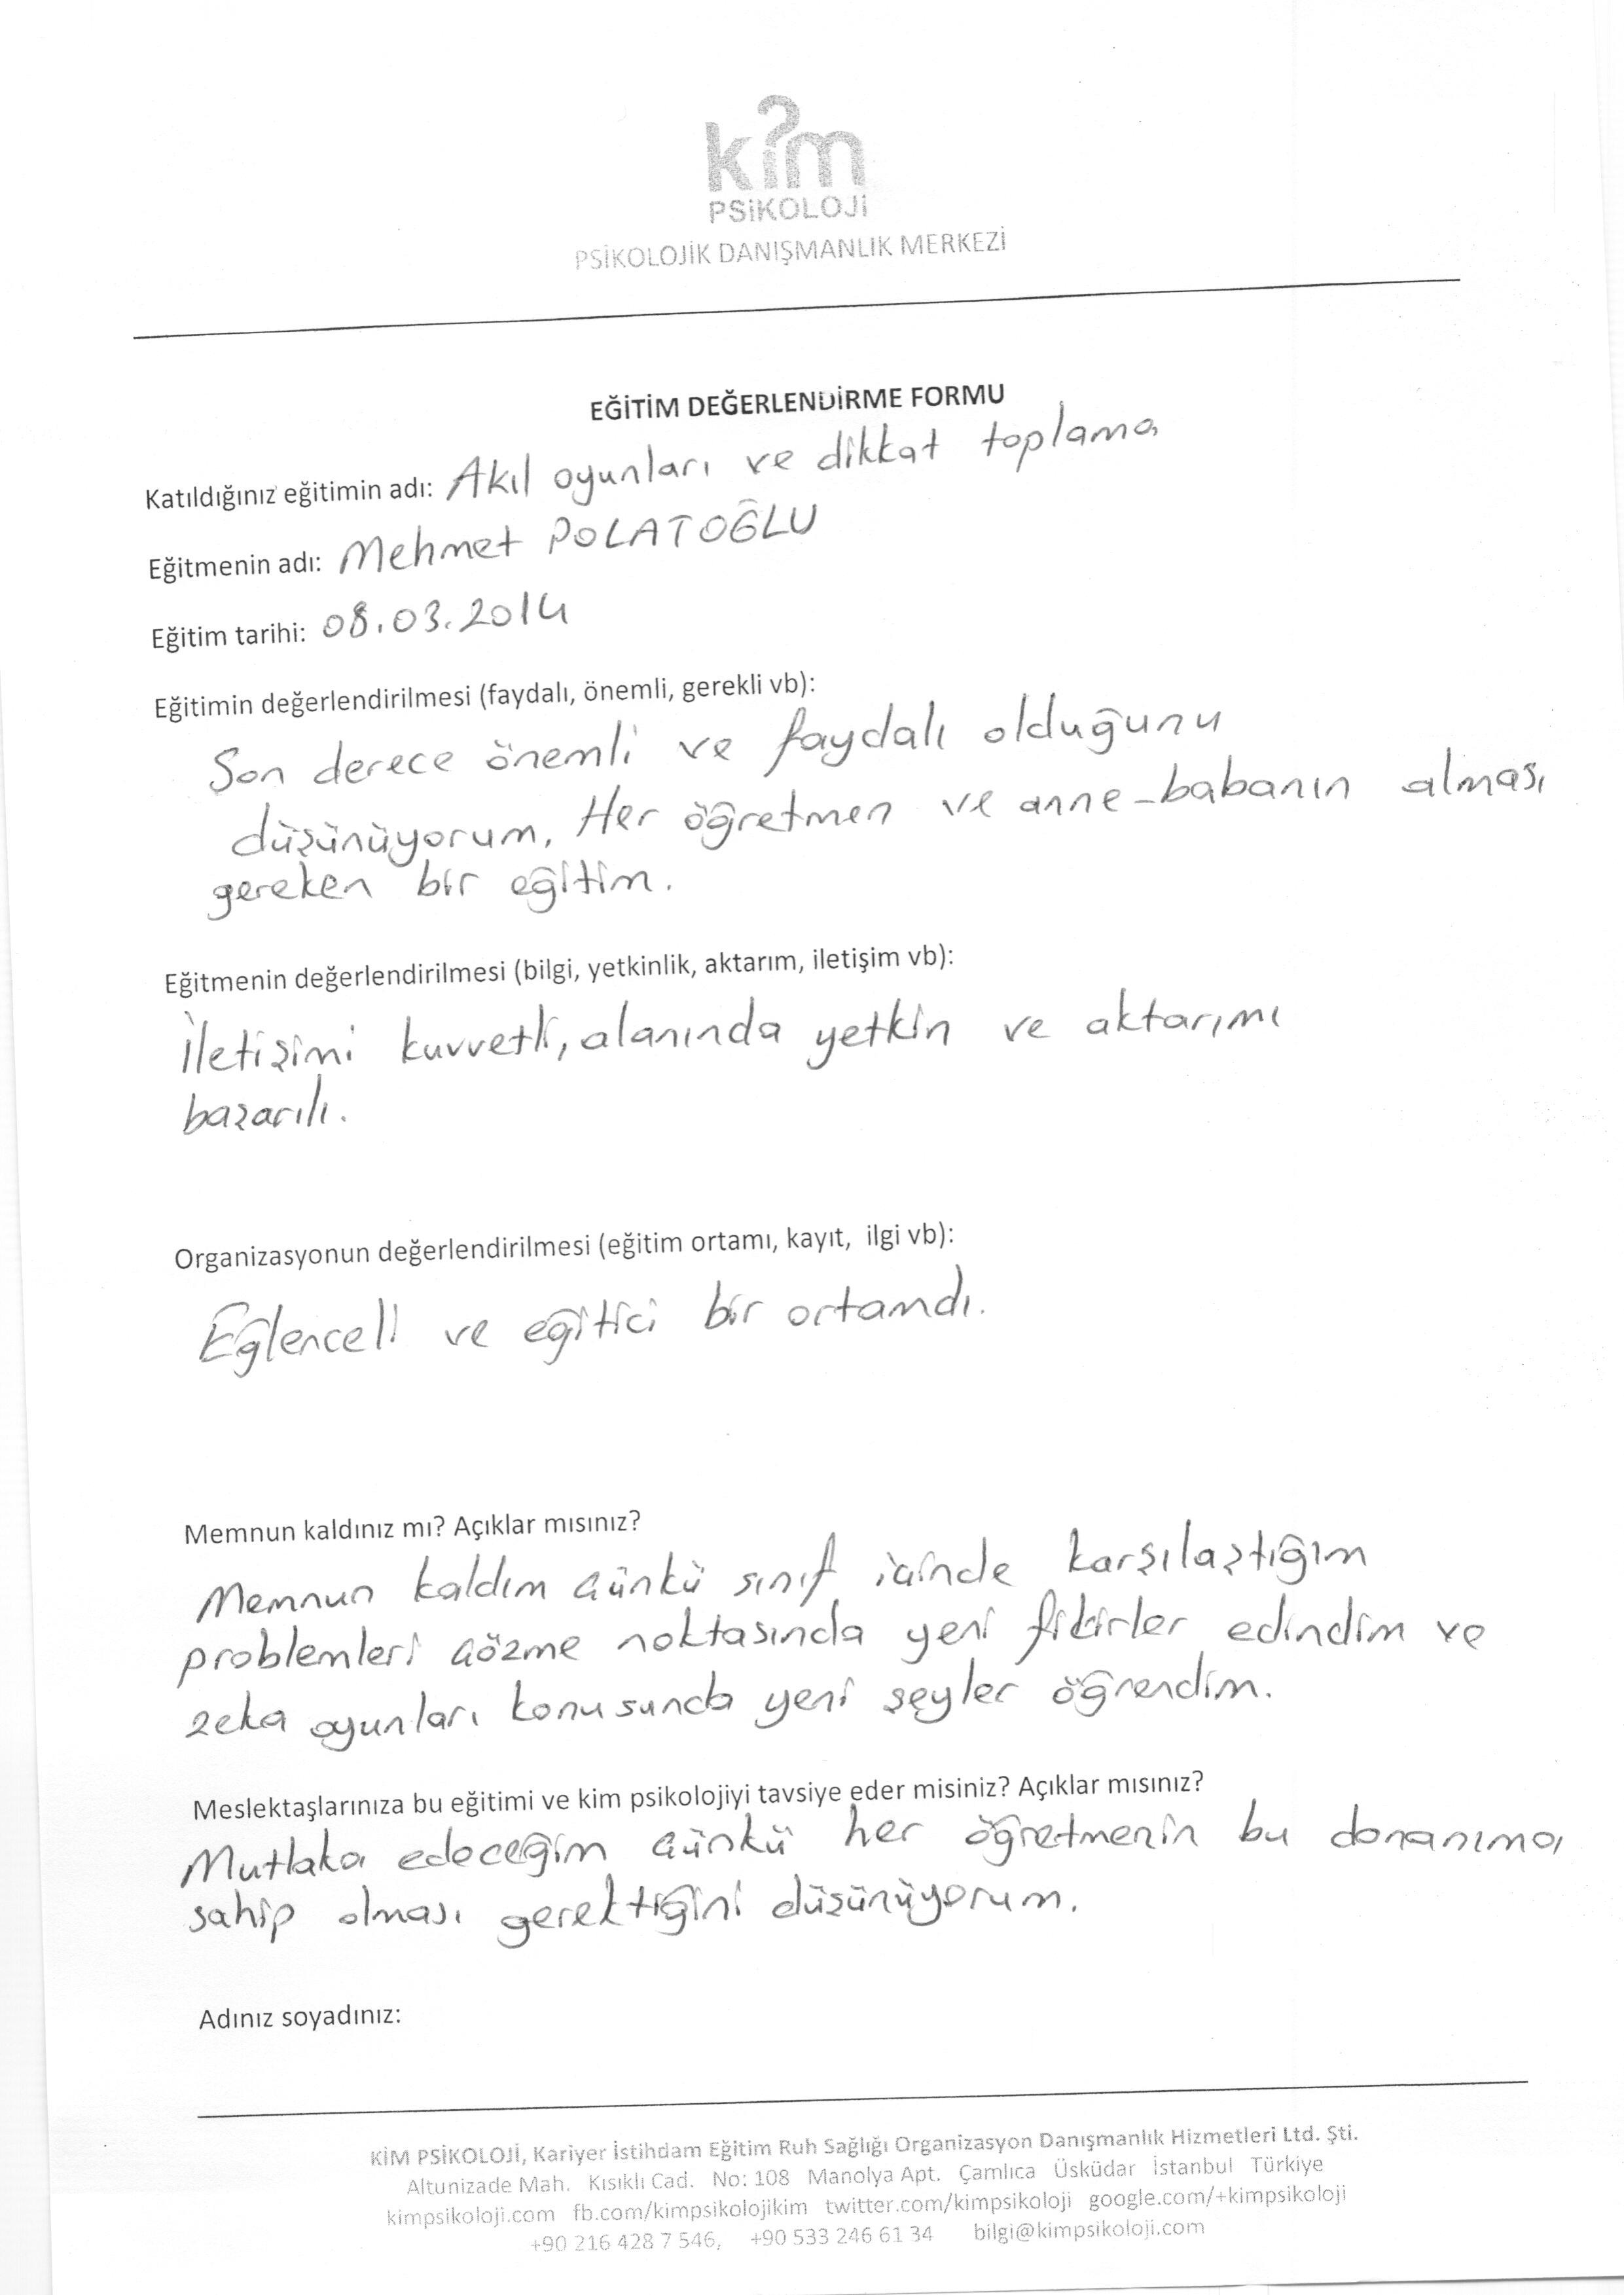 kim
PSİKOLOJİ
PSİKOLOJİK DANIŞMANLIK MERKEZİ
EĞİTİM DEĞERLENDİRME FORMU
Katıldığınız eğitimin adı: Akıl oyunları ve dikkat toplama
Eğitmenin adı: Mehmet POLATOĞLU
Eğitim tarihi: 08.03.2014
Eğitimin değerlendirilmesi (faydalı, önemli, gerekli vb):
Son derece önemli ve faydalı olduğunu
düşünüyorum. Her öğretmen ve anne-babanın alması
gereken bir eğitim.
Eğitmenin değerlendirilmesi (bilgi, yetkinlik, aktarım, iletişim vb):
İletişimi kuvvetli, alanında yetkin ve aktarımı
başarılı.
Organizasyonun değerlendirilmesi (eğitim ortamı, kayıt, ilgi vb):
Eğlenceli ve eğitici bir ortamdı.
Memnun kaldınız mı? Açıklar mısınız?
Memnun kaldım çünkü sınıf içinde karşılaştığım
problemleri çözme noktasında yeni fikirler edindim ve
zeka oyunları konusunda yeni şeyler öğrendim.
Meslektaşlarınıza bu eğitimi ve kim psikolojiyi tavsiye eder misiniz? Açıklar mısınız?
Mutlaka edeceğim çünkü her öğretmenin bu donanıma
sahip olması gerektiğini düşünüyorum.
Adınız soyadınız:
KİM PSİKOLOJİ, Kariyer İstihdam Eğitim Ruh Sağlığı Organizasyon Danışmanlık Hizmetleri Ltd. Şti.
Altunizade Mah. Kısıklı Cad. No: 108 Manolya Apt. Çamlıca Üsküdar İstanbul Türkiye
kimpsikoloji.com fb.com/kimpsikolojikim twitter.com/kimpsikoloji google.com/+kimpsikoloji
+90 216 428 7 546, +90 533 246 61 34 bilgi@kimpsikoloji.com